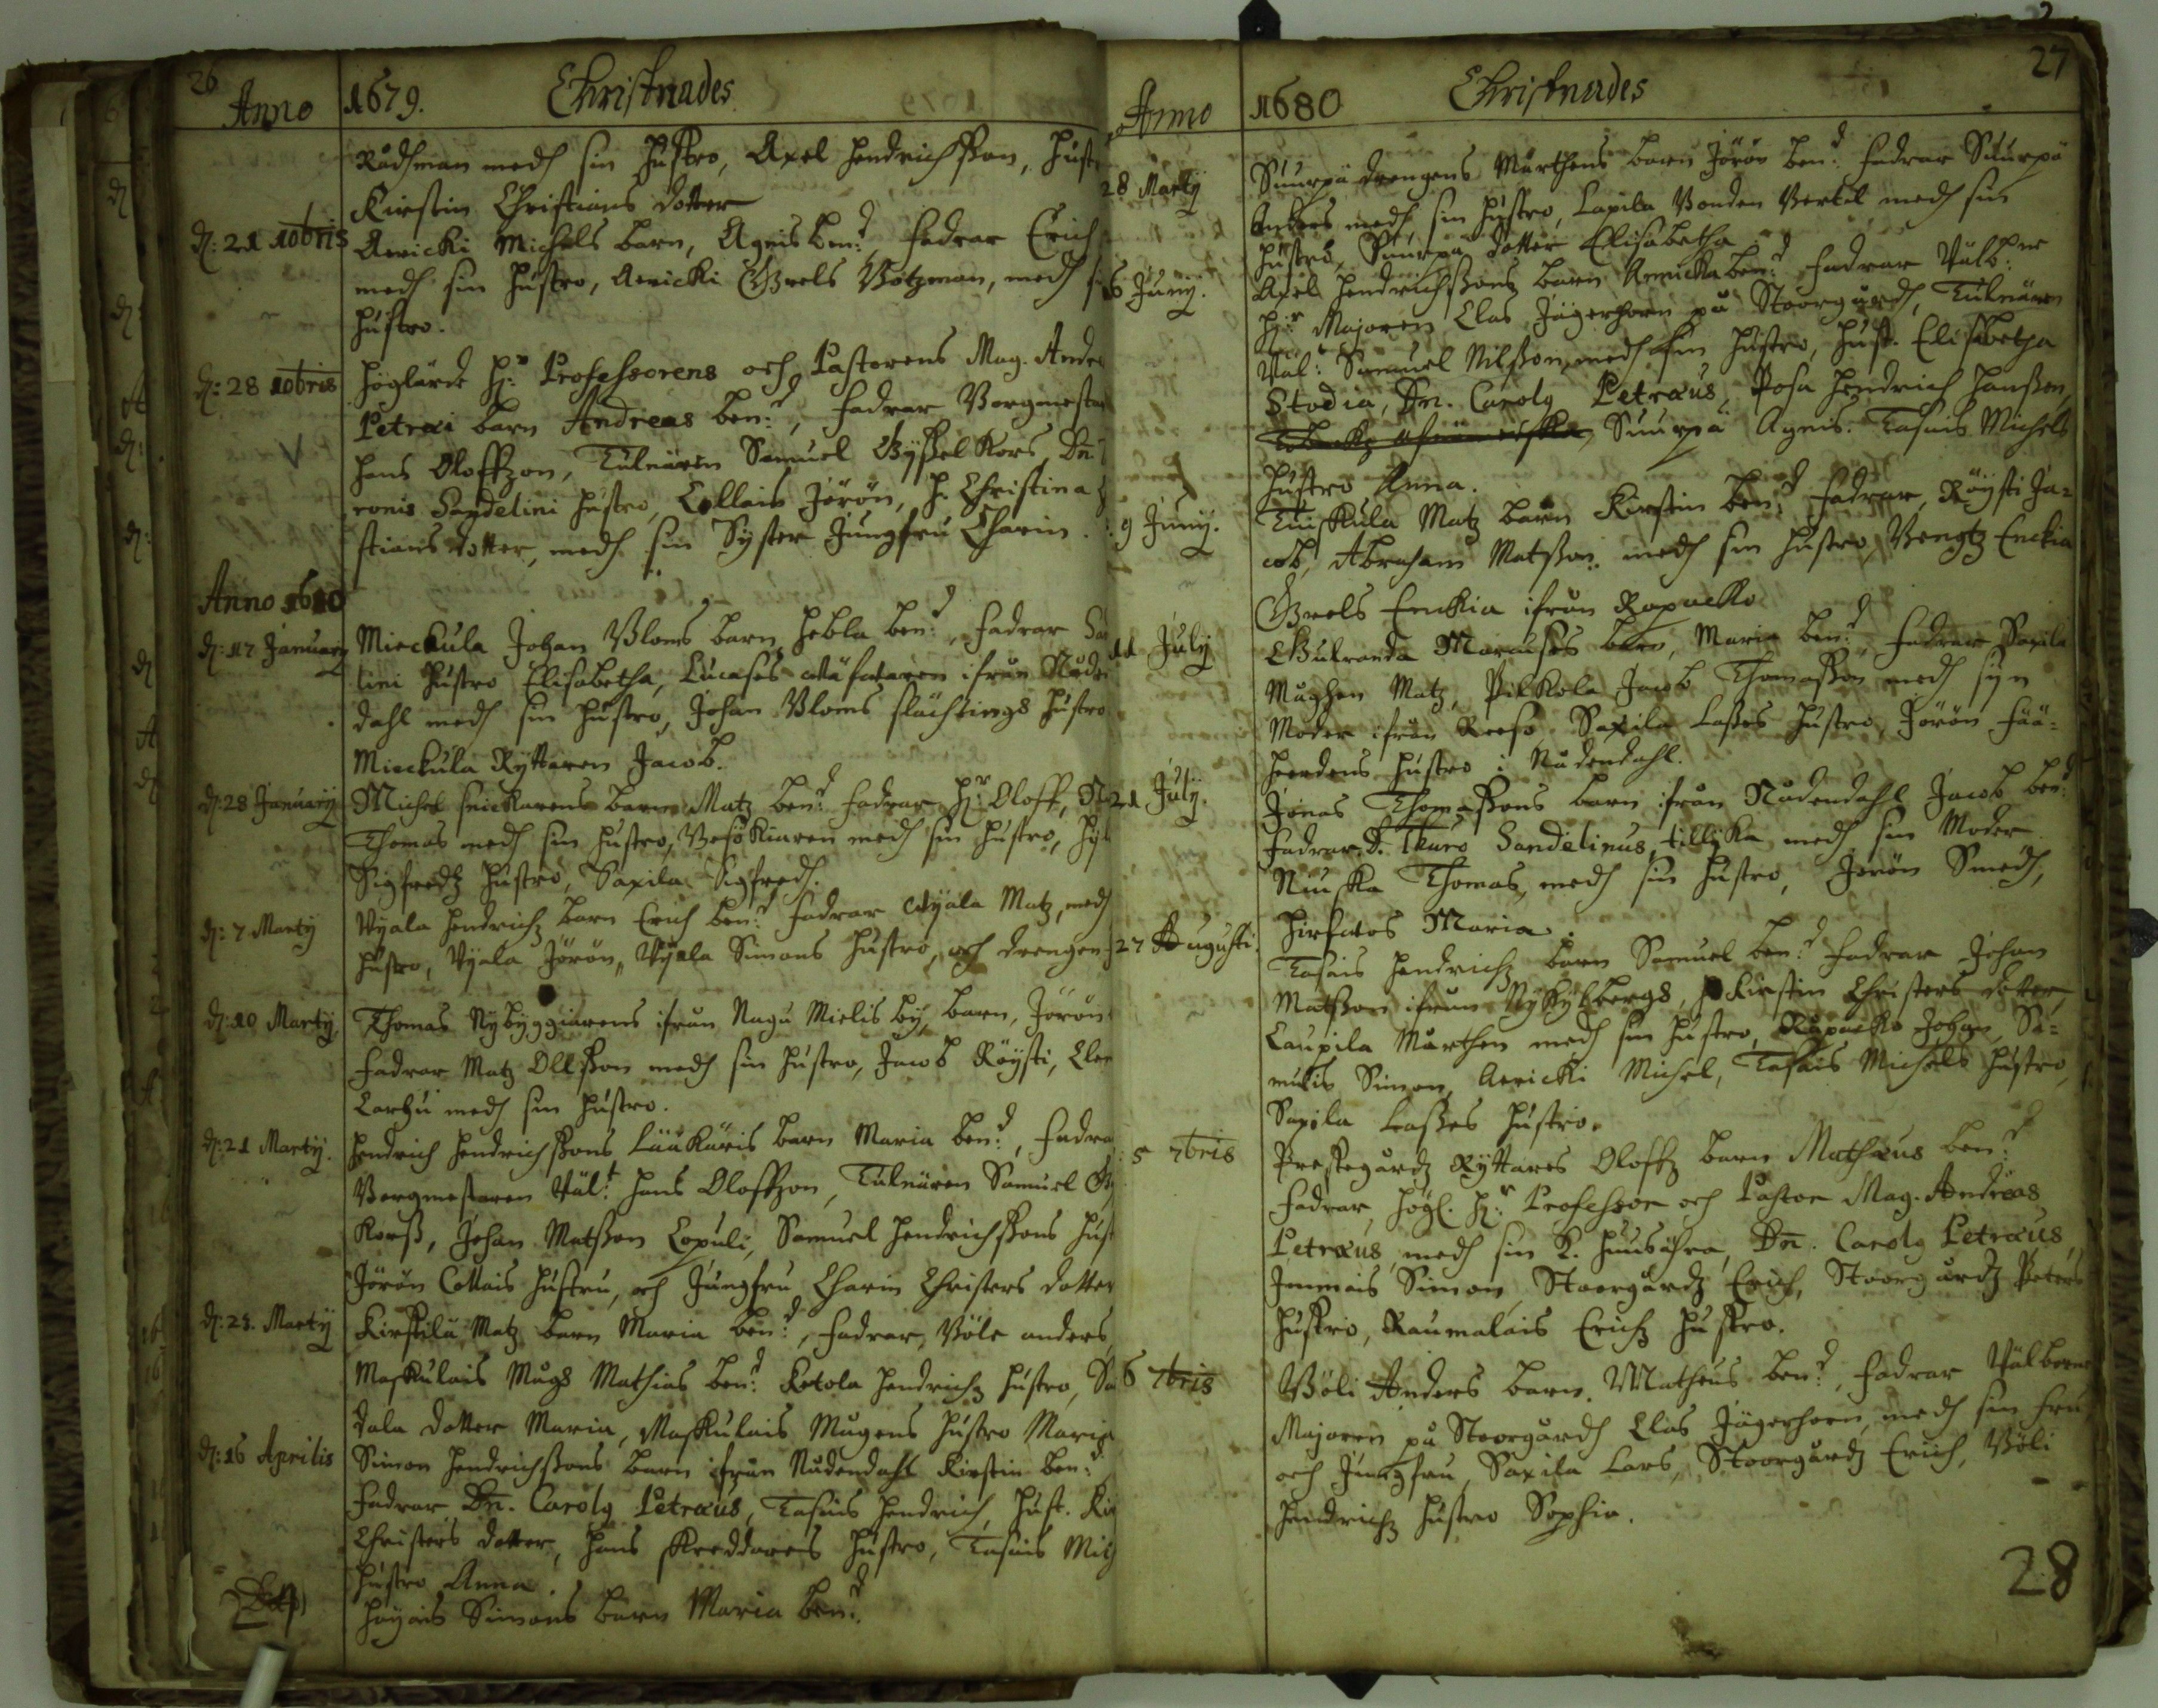 26
Anno 1679. Christnades
Rådhman medh sin hustro, Axel Hendrichsson, hust
Kirstin Christians dotter
d: 21 10bris Aericki Michels barn, Agnis ben:d, fadrar Erich
medh sin hustro, Aericki Grels Botzman, medh si
hustro.
d: 28 10bris Höglärde H:r Professorens och Pastorens Mag. Andre
Petræi barn Andreas ben:d, fadrar Borgmesta
Hans Oloffzon, Tulnären Samuel Gysselkors, Dn:
ronis Sandelini hustro, Collais Jörön, H. Christina
stians dotter, medh sin Syster Jungfru Charin.
Anno 1680
d: 17 January Mieckula Johan Bloms barn Hebla ben:d, fadrar Sa
lini hustro Elisabetha, Lucases ifrån Nåde
dahl medh sin hustro, Johan Bloms slächtings hustro
Mieckula Ryttaren Jacob.
d: 28 January Michel snickarens barn Matz ben:d fadrar H:r Oloff,
Thomas medh sin hustro, Besökiaren medh sin hustro,
Sigfredz hustro, Saxila Sigfredh.
d: 7 Marty Vyala Hendrichz barn Erich ben:d fadrar Vyala Matz, medh
hustro, Vyala Jörön, Vyala Simons hustro, och drengen
d: 10 Marty Thomas Nybyggiarens ifrån Nagu Mielis by, barn, Jörön
fadrar Matz Ollsson medh sin hustro, Jacob Röysti, Cle
Larhu medh sin hustro.
d: 21 Marty. Hendrich Hendrichssons Lääkäris barn Maria ben:d, fadra
Borgmestaren Väl:t Hans Oloffzon, Tulnären Samuel Gy
Korss, Johan Matsson Lopuli, Samuel Hendrichssons hus
Jörön Collais hustru, och Jungfru Charin Christers dotter
d: 23. Marty Kirstilä Matz barn Maria ben:d, fadrar, Böle anders,
Maskulais Mågs Mathias ben:d Ketola Hendrichz hustro, Sa
dala dotter Maria, Maskulais Mågens hustro Maria
d: 16 Aprilis Simon Hendrichssons barn ifrån Nådendahl Kirstin ben:d
fadrar Dn. Carolg Petræus, Tasais Hendrich, hust. Kir
Christers dotter, Hans skreddares hustro, Tasais Mich
hustro Anna.
Häyäis Simons barn Maria ben:d.
27
Anno 1680 Christnades
28 Marty Suurpä drengens Mårthens barn Jörön ben:d fadrar Suurpä
Anders medh sin hustro, Laxila Bonden Bertil medh sin
hustro, Suurpä dotter Elisabetha
6 Juny. Axel Hendrichssons barn Annicka ben:d fadrar Välb:ne
H:r Majoren Clas Jägerhorn på Stoorgårdh, Tulnären
Väl:t Samuel Nilsson medh sin hustro, hust. Elisabetha
Stodia, Dn. Carolg Petræus, Posa Hendrich Hansson,
Suurpä Agnis. Tasais Michels
hustro Anna.
9 Juny. Tuskula Matz barn Kirstin ben:d fadrar, Röysti Ja=
cob, Abraham Matsson medh sin hustro, Bengtz Enckia
Grels Enckia ifrån Rapacko
11 July Gulranda Marcuses barn, Maria ben:d fadrar Saxila
Måghen Matz, Pilkola Jacob Thomasson medh syn
Moder ifrån Reso Saxila Lasses hustro, Jörön Fää=
heerdens hustro i Nådendahl.
21 July. Jonas Thomassons barn ifrån Nådendahl Jacob ben:d
fadrar. D. Thuro Sandelinus, tillijka medh sin Moder
Niuska Thomas, medh sin hustro, Jörön Smedh,
Hirfwos Maria.
27 Augusti. Tasais Hendrichz barn Samuel ben:d fadrar Johan
Matsson ifrån Nykylbergs, H Kirstin Christers dotter,
Laupila Mårthen medh sin hustro, Rapacko Johan, Sa=
mulis Simon, Aericki Michel, Tasais Michels hustro,
Saxila Lasses hustro.
5 7bris Prestegårdz Ryttares Oloffz barn Mathæus ben:d
fadrar, Högl. H:r Professor och Pastor Mag. Andreas
Petræus, medh sin K. huusähra, Dn. Carolg Petræus,
Immais Simon, Stoorgårdz Erich, Stoorgårdz Peters
hustro, Raumalais Erichz hustro.
6 7bris Böli Anders barn Matheus ben:d, fadrar Välborne
Majoren på Stoorgårdh Clas Jägerhorn, medh sin fru
och Jungfru, Saxila Lars, Stoorgårdz Erich, Böli
Hendrichz hustro Sophia.
28